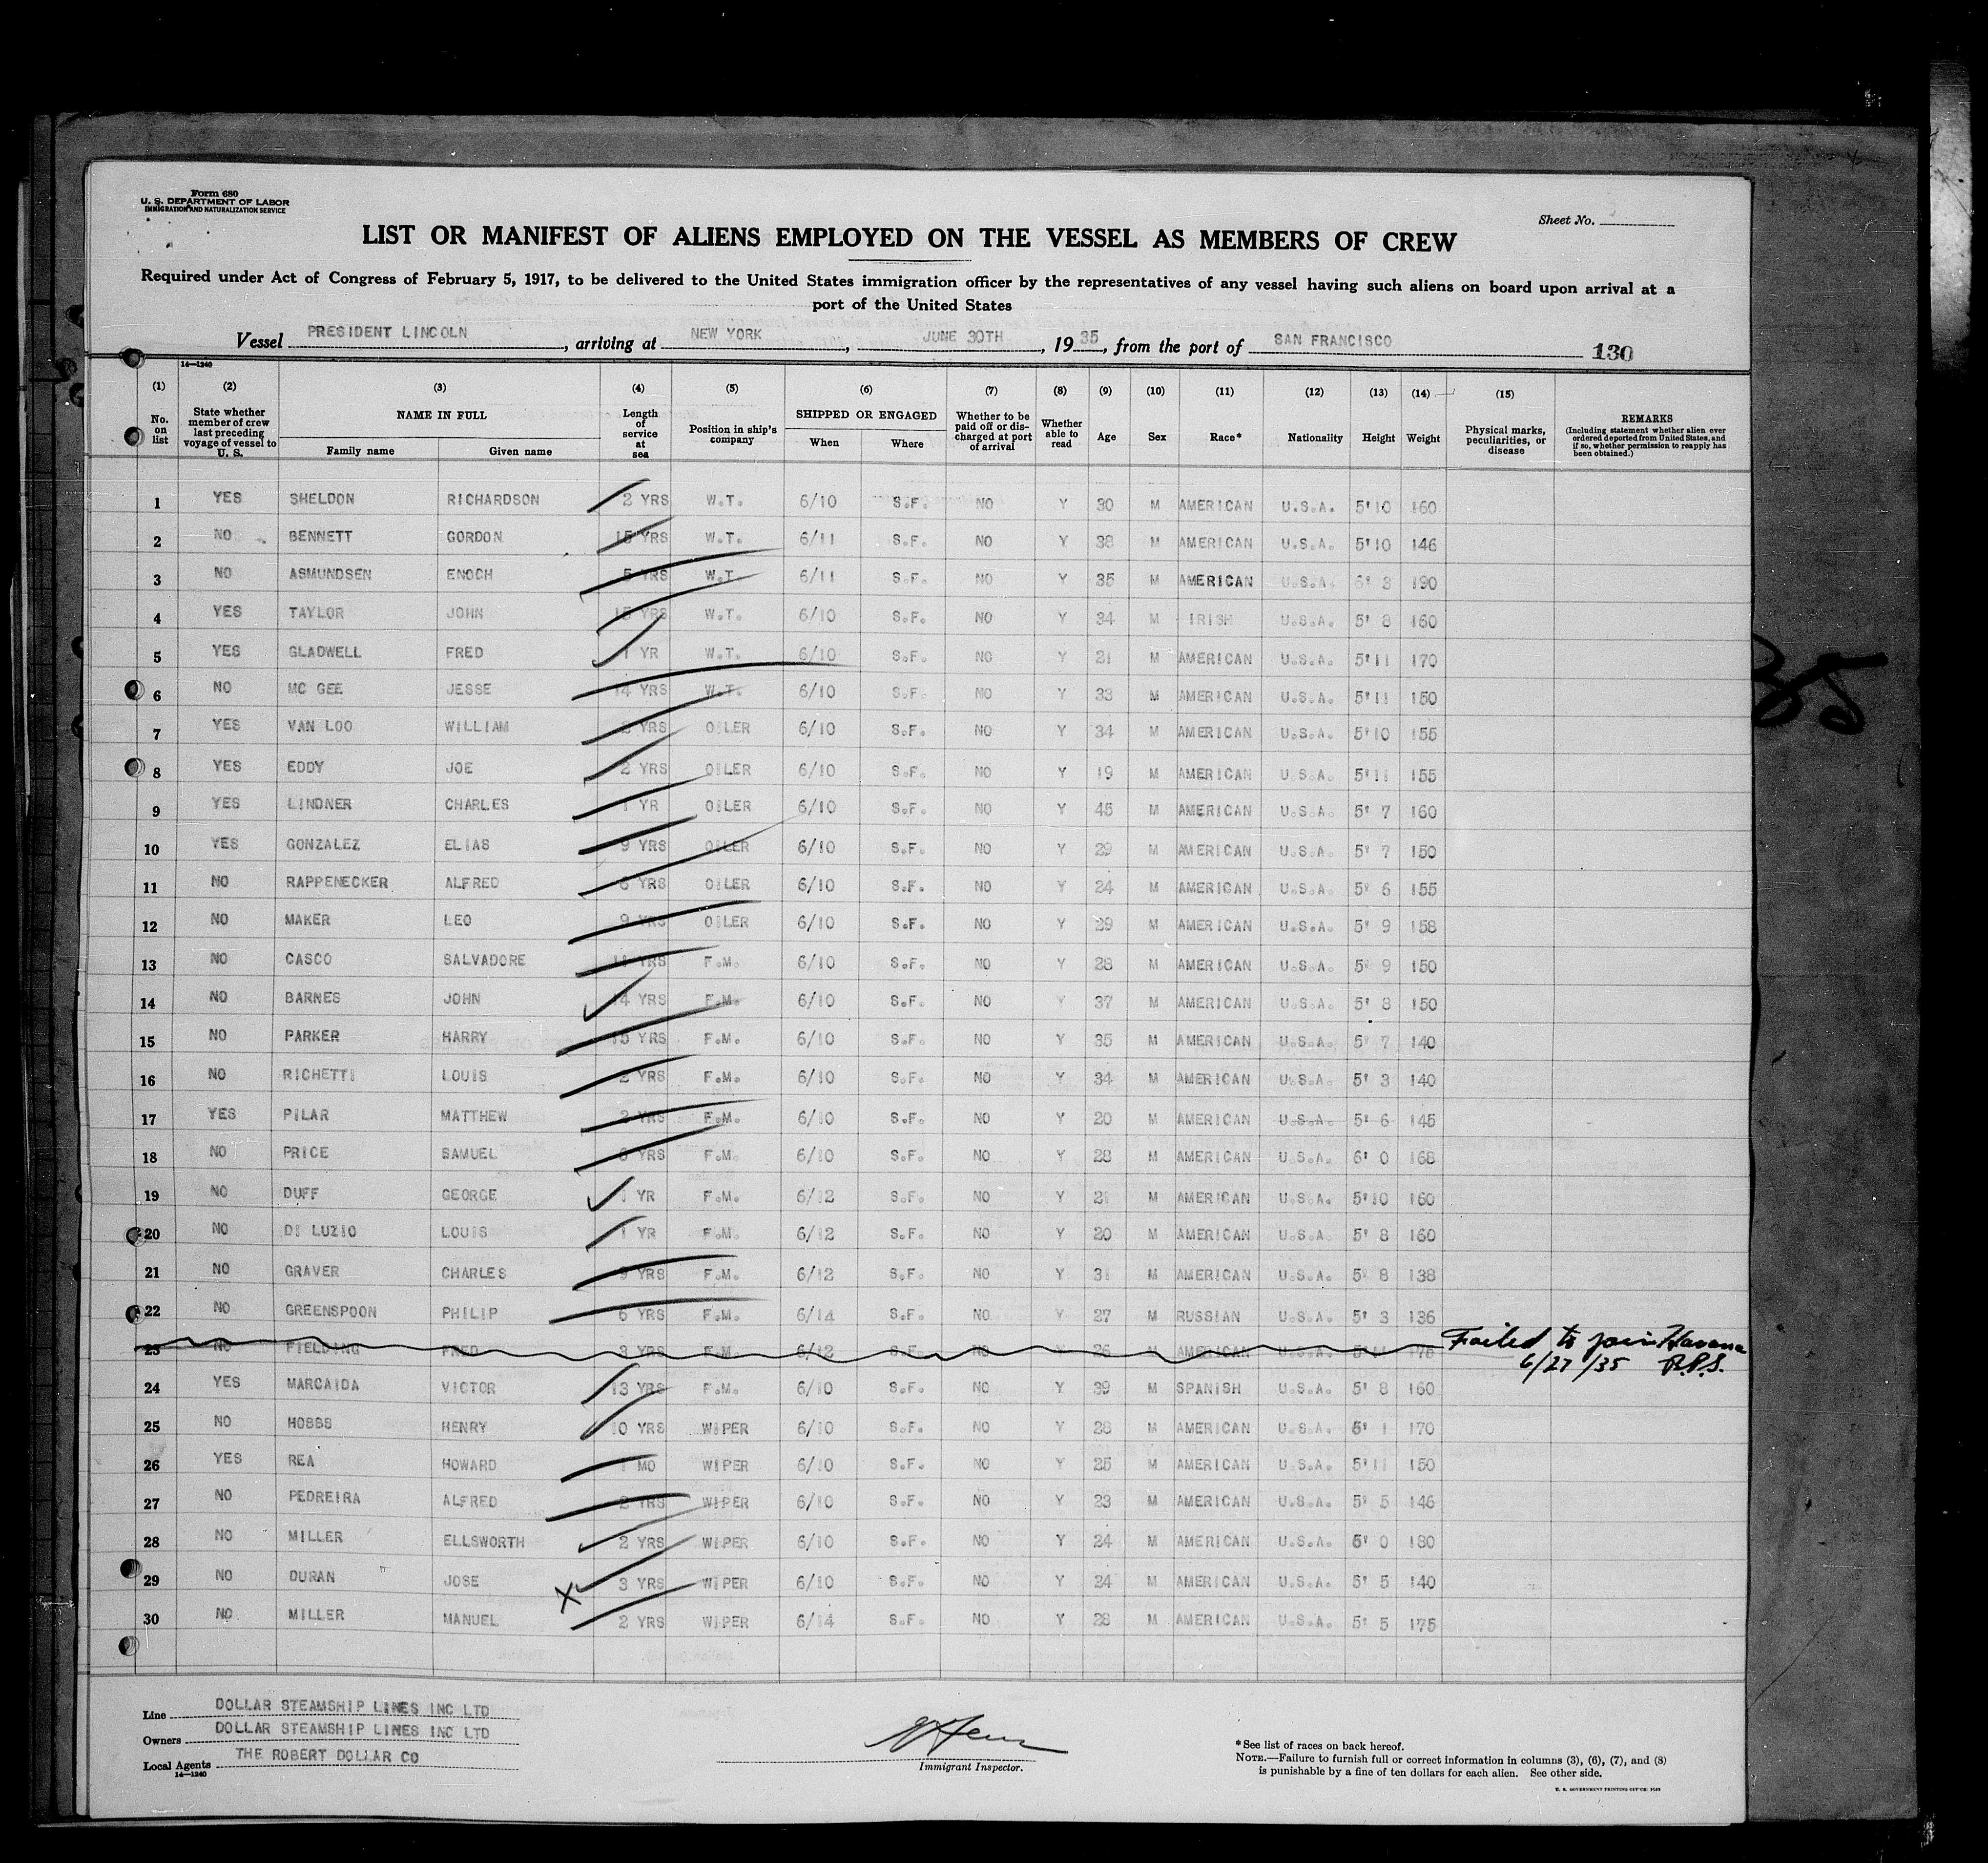 Form 680
U. S. DEPARTMENT OF LABOR
IMMIGRATION AND NATURALIZATION SERVICE
Sheet No.
LIST OR MANIFEST OF ALIENS EMPLOYED ON THE VESSEL AS MEMBERS OF CREW
Required under Act of Congress of February 5, 1917, to be delivered to the United States immigration officer by the representatives of any vessel having such aliens on board upon arrival at a
port of the United States
Vessel PRESIDENT LINCOLN, arriving at NEW YORK, JUNE 30TH, 1935, from the port of SAN FRANCISCO 130
14—1240
(1) (2) (3) (4) (5) (6) (7) (8) (9) (10) (11) (12) (13) (14) (15)
No. on list State whether member of crew last preceding voyage of vessel to U. S. NAME IN FULL Family name Given name Length of service at sea Position in ship's company SHIPPED OR ENGAGED When Where Whether to be paid off or discharged at port of arrival Whether able to read Age Sex Race* Nationality Height Weight Physical marks, peculiarities, or disease REMARKS (Including statement whether alien ever ordered deported from United States, and if so, whether permission to reapply has been obtained.)
1 YES SHELDON RICHARDSON 2 YRS W.T. 6/10 S.F. NO Y 30 M AMERICAN U.S.A. 5'10 160
2 NO BENNETT GORDON 15 YRS W.T. 6/11 S.F. NO Y 38 M AMERICAN U.S.A. 5'10 146
3 NO ASMUNDSEN ENOCH 5 YRS W.T. 6/11 S.F. NO Y 35 M AMERICAN U.S.A. 6' 3 190
4 YES TAYLOR JOHN 15 YRS W.T. 6/10 S.F. NO Y 34 M IRISH U.S.A. 5' 8 160
5 YES GLADWELL FRED 1 YR W.T. 6/10 S.F. NO Y 21 M AMERICAN U.S.A. 5'11 170
6 NO MC GEE JESSE 14 YRS W.T. 6/10 S.F. NO Y 33 M AMERICAN U.S.A. 5'11 150
7 YES VAN LOO WILLIAM YRS OILER 6/10 S.F. NO Y 34 M AMERICAN U.S.A. 5'10 155
8 YES EDDY JOE 2 YRS OILER 6/10 S.F. NO Y 19 M AMERICAN U.S.A. 5'11 155
9 YES LINDNER CHARLES 1 YR OILER 6/10 S.F. NO Y 45 M AMERICAN U.S.A. 5' 7 160
10 YES GONZALEZ ELIAS 9 YRS OILER 6/10 S.F. NO Y 29 M AMERICAN U.S.A. 5' 7 150
11 NO RAPPENECKER ALFRED 6 YRS OILER 6/10 S.F. NO Y 24 M AMERICAN U.S.A. 5' 6 155
12 NO MAKER LEO 9 YRS OILER 6/10 S.F. NO Y 39 M AMERICAN U.S.A. 5' 9 158
13 NO CASCO SALVADORE 11 YRS F.M. 6/10 S.F. NO Y 28 M AMERICAN U.S.A. 5' 9 150
14 NO BARNES JOHN 14 YRS F.M. 6/10 S.F. NO Y 37 M AMERICAN U.S.A. 5' 8 150
15 NO PARKER HARRY 15 YRS F.M. 6/10 S.F. NO Y 35 M AMERICAN U.S.A. 5' 7 140
16 NO RICHETTI LOUIS 2 YRS F.M. 6/10 S.F. NO Y 34 M AMERICAN U.S.A. 5' 3 140
17 YES PILAR MATTHEW 2 YRS F.M. 6/10 S.F. NO Y 20 M AMERICAN U.S.A. 5' 6 145
18 NO PRICE SAMUEL YRS F.M. 6/10 S.F. NO Y 28 M AMERICAN U.S.A. 6' 0 168
19 NO DUFF GEORGE 1 YR F.M. 6/12 S.F. NO Y 21 M AMERICAN U.S.A. 5'10 160
20 NO DI LUZIO LOUIS 1 YR F.M. 6/12 S.F. NO Y 20 M AMERICAN U.S.A. 5' 8 160
21 NO GRAVER CHARLES 9 YRS F.M. 6/12 S.F. NO Y 31 M AMERICAN U.S.A. 5' 8 138
22 NO GREENSPOON PHILIP 6 YRS F.M. 6/14 S.F. NO Y 27 M RUSSIAN U.S.A. 5' 3 136
23 NO FIELDING FRED 3 YRS F.M. 6/12 S.F. NO Y 26 M AMERICAN U.S.A. 5'11 175 Failed to join Havana
6/27/35 R.P.S.
24 YES MARCAIDA VICTOR 13 YRS F.M. 6/10 S.F. NO Y 39 M SPANISH U.S.A. 5' 8 160
25 NO HOBBS HENRY 10 YRS WIPER 6/10 S.F. NO Y 28 M AMERICAN U.S.A. 6' 1 170
26 YES REA HOWARD 1 MO WIPER 6/10 S.F. NO Y 25 M AMERICAN U.S.A. 5'11 150
27 NO PEDREIRA ALFRED 2 YRS WIPER 6/10 S.F. NO Y 23 M AMERICAN U.S.A. 5' 5 146
28 NO MILLER ELLSWORTH 2 YRS WIPER 6/10 S.F. NO Y 24 M AMERICAN U.S.A. 6' 0 180
29 NO DURAN JOSE 3 YRS WIPER 6/10 S.F. NO Y 24 M AMERICAN U.S.A. 5' 5 140
30 NO MILLER MANUEL 2 YRS WIPER 6/14 S.F. NO Y 28 M AMERICAN U.S.A. 5' 5 175
Line DOLLAR STEAMSHIP LINES INC LTD
Owners DOLLAR STEAMSHIP LINES INC LTD
Local Agents THE ROBERT DOLLAR CO
14—1240
Immigrant Inspector.
*See list of races on back hereof.
NOTE.—Failure to furnish full or correct information in columns (3), (6), (7), and (8)
is punishable by a fine of ten dollars for each alien. See other side.